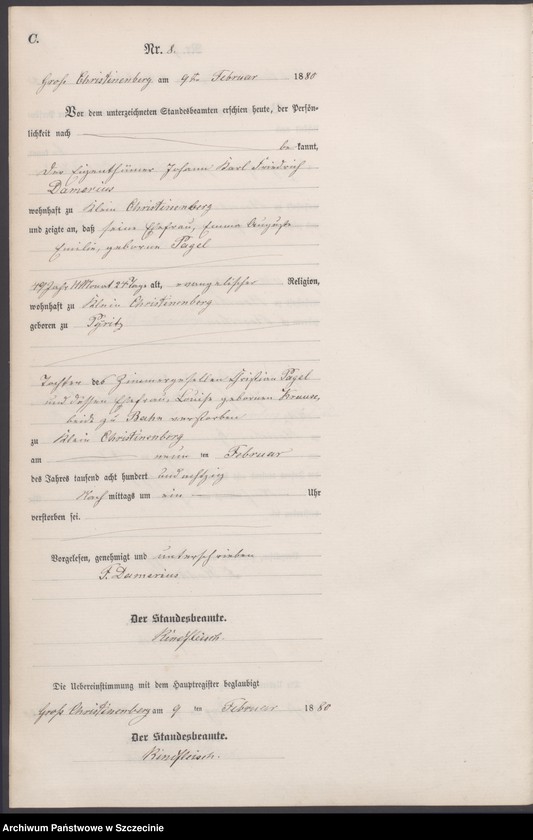 C.
Nr. 8.
Groß Christinenberg am 9ten Februar 1880
Vor dem unterzeichneten Standesbeamten erschien heute, der Persön-
lichkeit nach
bekannt,
der Eigenthümer Johann Karl Friedrich
Damerius
wohnhaft zu Klein Christinenberg
und zeigte an, daß seine Ehefrau, Emma Auguste
Emilie, geborne Pagel
Jahr 11 Monat 24 Tage alt, evangelischer Religion,
wohnhaft zu Klein Christinenberg
geboren zu Pyritz
Tochter des Zimmergesellen Christian Pagel
und dessen Ehefrau, Louise gebornen Krause,
beide zu Bahn verstorben
zu Klein Christinenberg
am neun ten Februar
des Jahres tausend acht hundert und achtzig
Nach mittags um ein Uhr
verstorben sei.
Vorgelesen, genehmigt und unterschrieben
F. Damerius
Der Standesbeamte.
Rindfleisch.
Die Uebereinstimmung mit dem Hauptregister beglaubigt
Groß Christinenberg am 9 ten Februar 1880
Der Standesbeamte.
Rindfleisch.
Archiwum Państwowe w Szczecinie